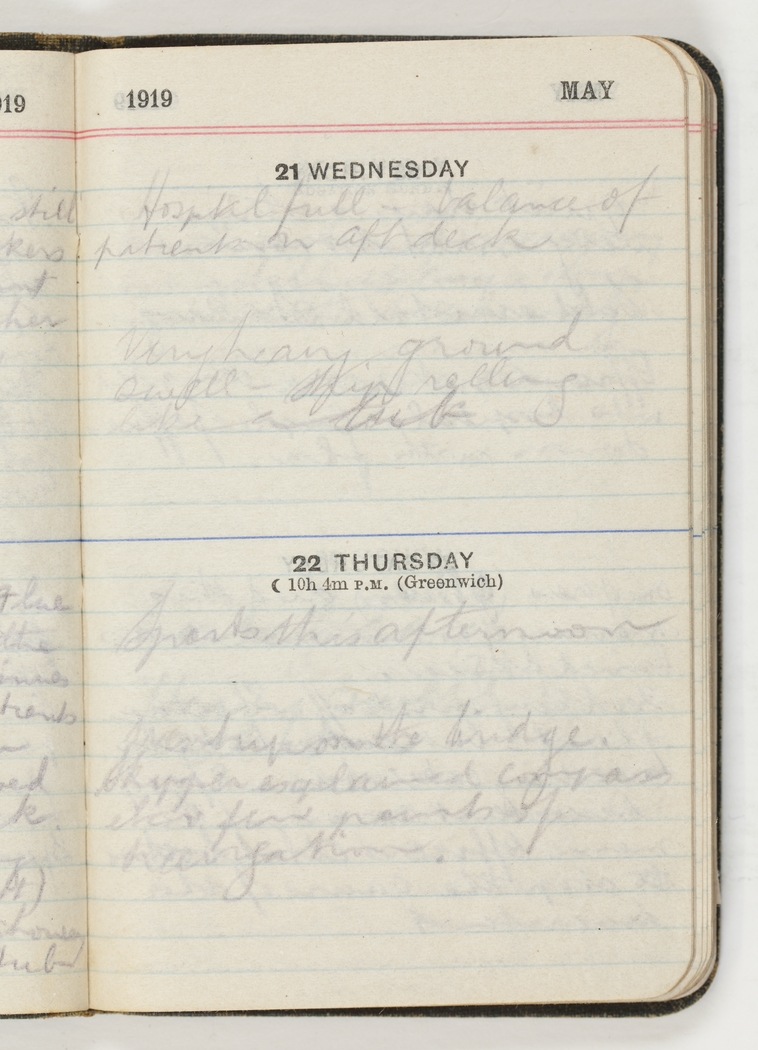 919
still
kers
ont
her
the
trents
ved
k.
1919 MAY
21 WEDNESDAY
Hospital full - balance of
patients on aft deck
Very heavy ground
swell - ship rolling
like a
22 THURSDAY
☾ 10h 4m P.M. (Greenwich)
Sports this afternoon
up on the bridge.
Skipper explained compass
& few points of
navigation.